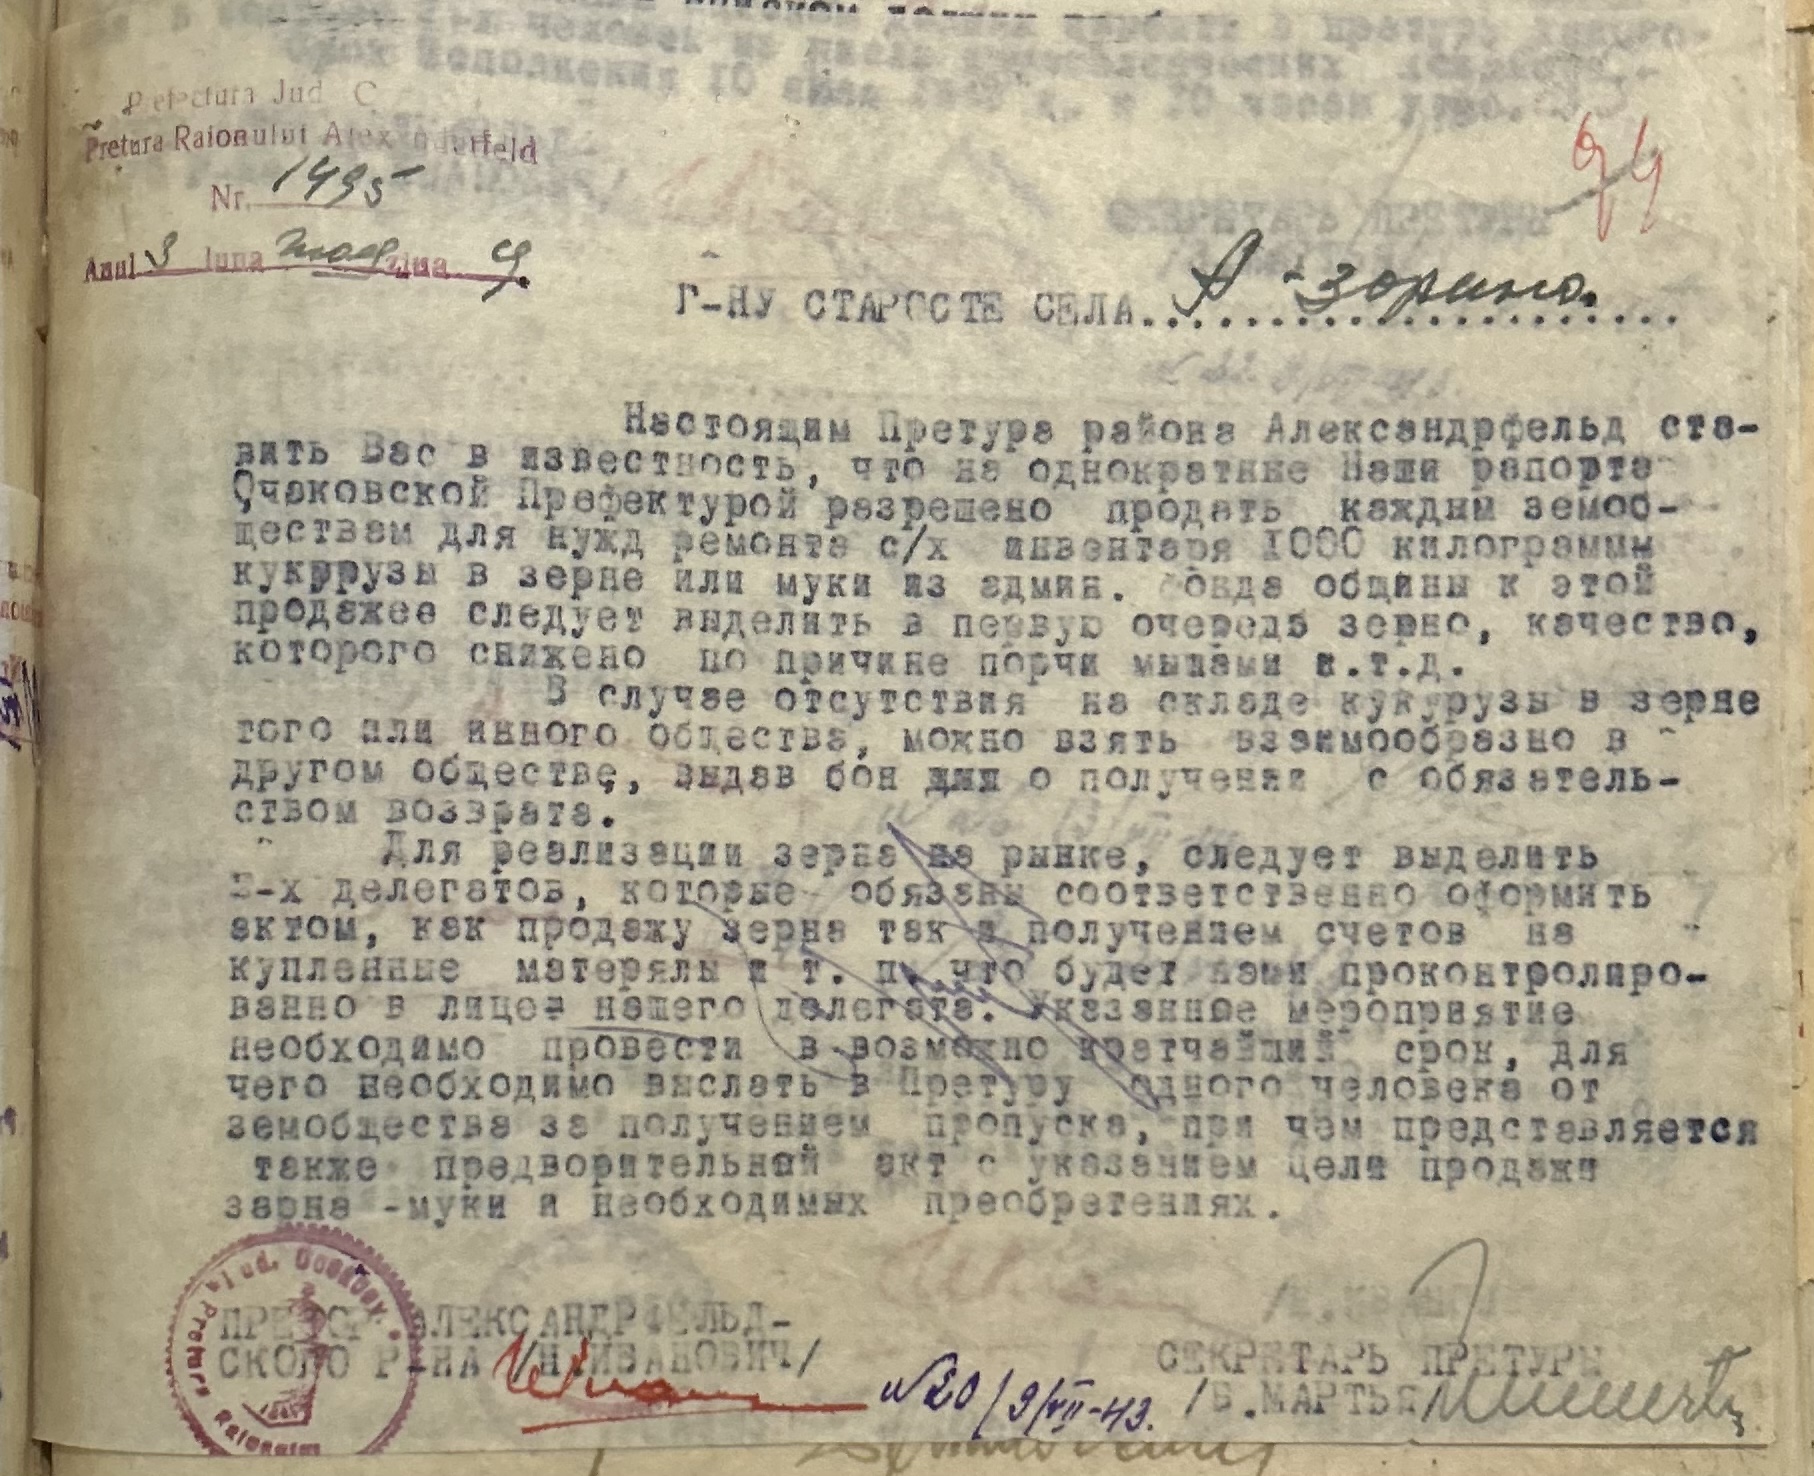 Prefectura Jud. O
Pretura Raionului Alexanderfeld
Nr. 1495
Anul 3 luna ziua 9.
94
Г-НУ СТАРОСТЕ СЕЛА А-зорино.
Настоящим Претура района Александрфельд ста-
вить Вас в известность, что на однократные Наши рапорта
Очаковской Префектурой разрешено продать каждым земоб-
ществам для нужд ремонта с/х инвентаря 1000 килограммы
кукррузы в зерне или муки из админ. фонда общины к этой
продажее следует выделить в первую очередь зерно, качество,
которого снижено по причине порчи мышами и.т.д.
В случае отсутствия на складе кукурузы в зерне
того или инного общества, можно взять взаимообразно в
другом обществе, выдав бон о получении с обязатель-
ством возврата.
Для реализации зерна на рынке, следует выделить
-х делегатов, которые обязаны соответственно оформить
актом, как продажу зерна так и получением счетов на
купленные матерялы и т. п. что будет нами проконтролиро-
ванно в лице нашего делегата. Указанное мероприятие
необходимо провести в возможно кратчайший срок, для
чего необходимо выслать в Претуру одного человека от
земобщества за получением пропуска, при чем представляется
также предворительный акт с указанием цели продажи
зарна -муки и необходимых преобретениях.
ПРЕТОР АЛЕКСАНДРФЕЛЬД-
СКОГО Р-НА /Н.ИВАНОВИЧ/
СЕКРЕТАРЬ ПРЕТУРЫ
/В.МАРТЬ
№20/9/VII-43.
Jud. Oceacov * Pretura Raionului